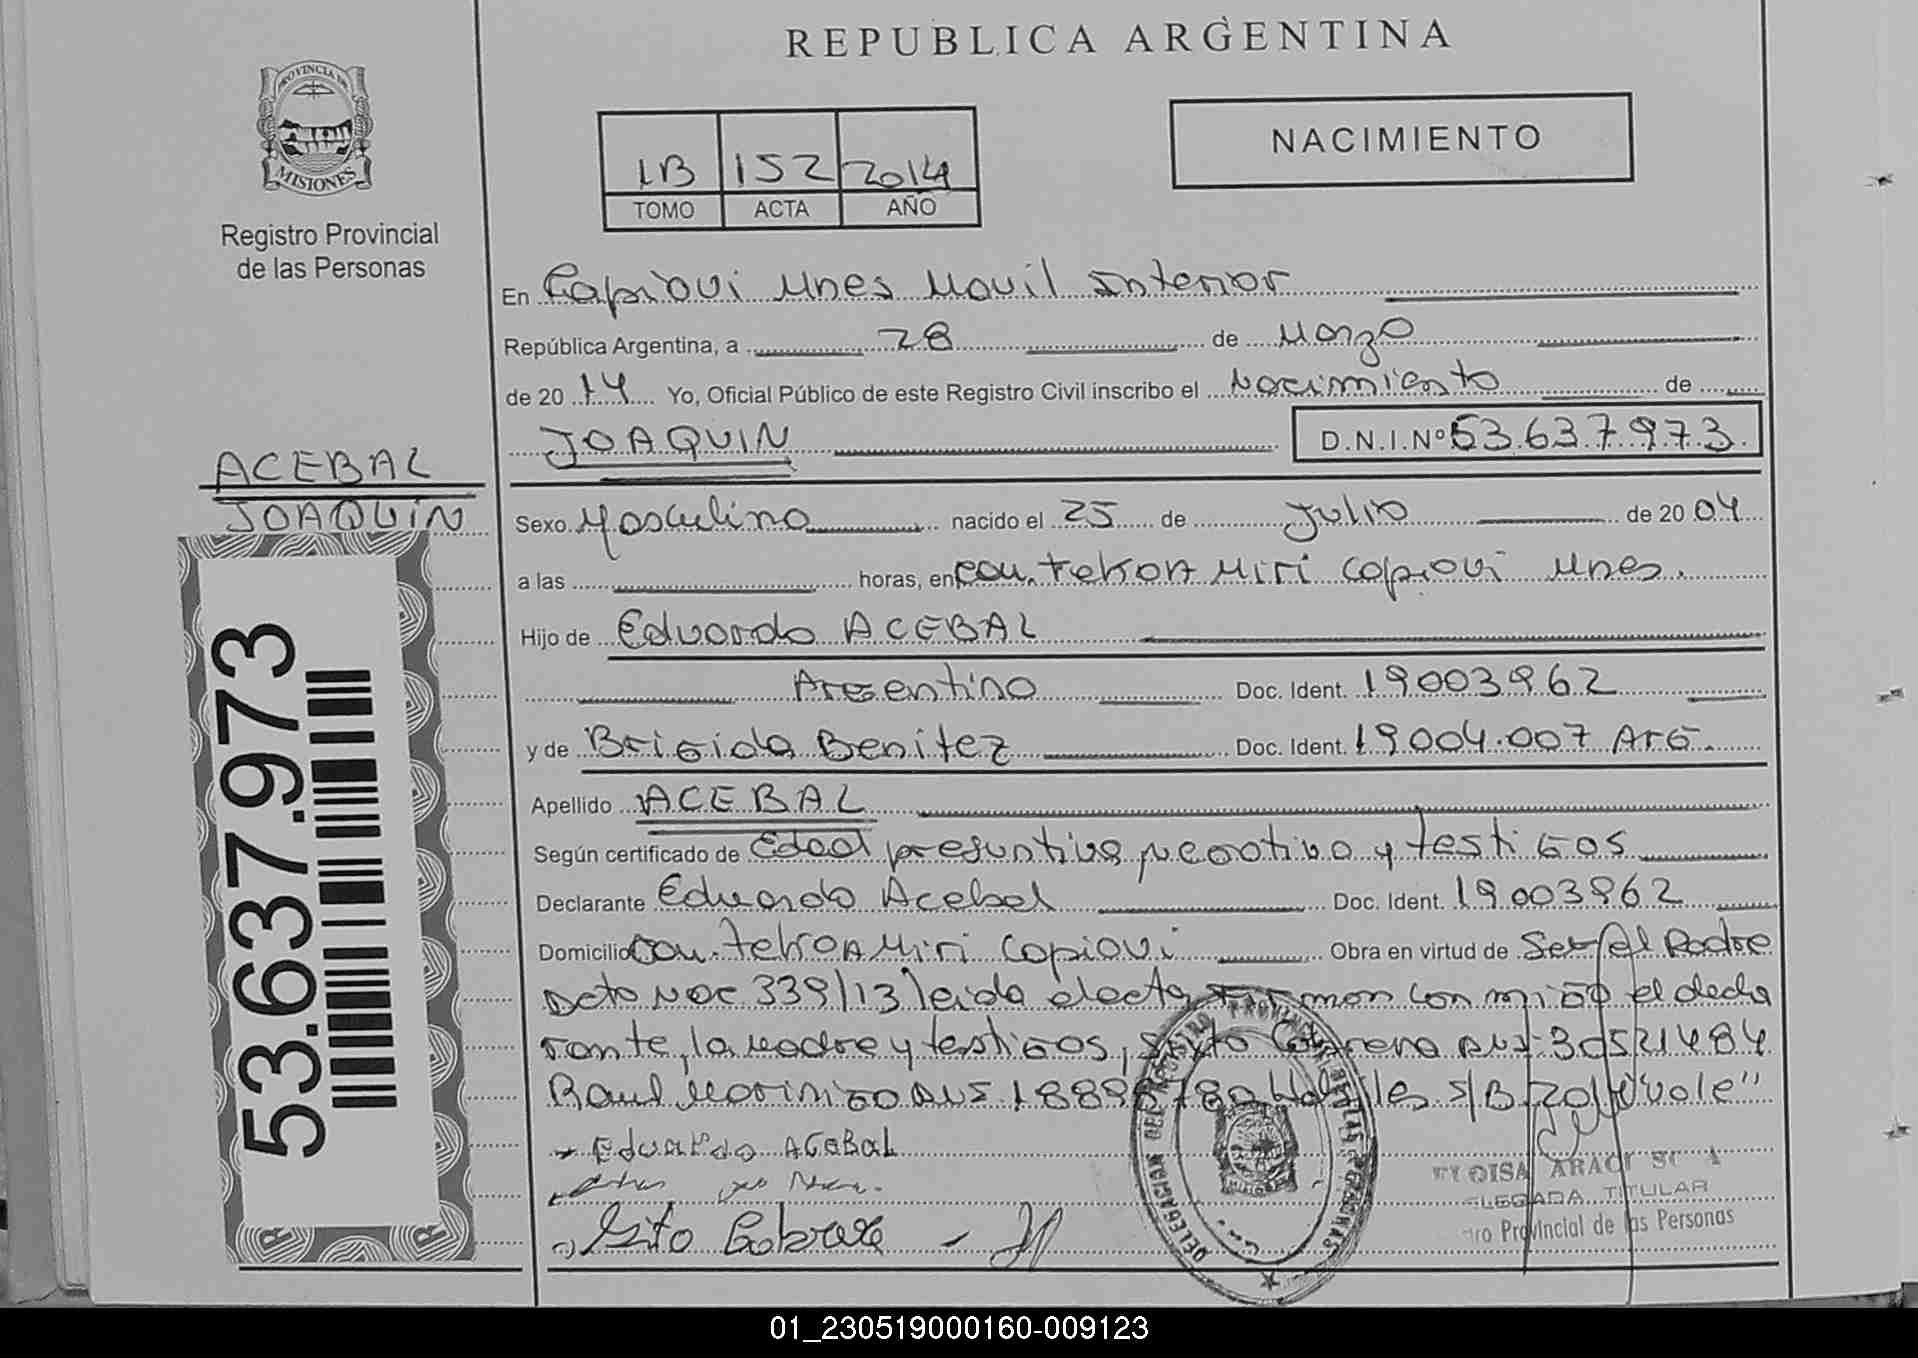 REPUBLICA ARGENTINA
PROVINCIA DE
MISIONES
Registro Provincial
de las Personas
1B 152 2014
TOMO ACTA AÑO
NACIMIENTO
En Capiovi Mnes Movil Interior
República Argentina, a 28 de Marzo
de 2014 Yo, Oficial Público de este Registro Civil inscribo el Nacimiento de
JOAQUIN D.N.I.Nº 53.637.973.
ACEBAL
JOAQUIN
Sexo Masculino nacido el 25 de Julio de 2004
a las horas, en Com. Tekoa Miri Capiovi Mnes.
Hijo de Eduardo ACEBAL
Argentino Doc. Ident. 19003962
y de Brigida Benitez Doc. Ident. 19004.007 Arg.
Apellido ACEBAL
Según certificado de Edad presuntiva, negativa y testigos
Declarante Eduardo Acebal Doc. Ident. 19003962
Domicilio Com. Tekoa Miri Capiovi Obra en virtud de Ser el Padre
Dcto Nac 339/13 leida el acta firman con migo el decla
rante, la madre y testigos, Sixto Cabrera DNI 30521484
Raul DNI 188 780 s/B 2014 "vale"
53.637.973
Eduardo ACEBAL
Sixto Cabrera
DELEGACION DEL REGISTRO PROVINCIAL DE LAS PERSONAS
MISIONES
ELOISA ARACI
DELEGADA TITULAR
Provincial de las Personas
01_230519000160-009123